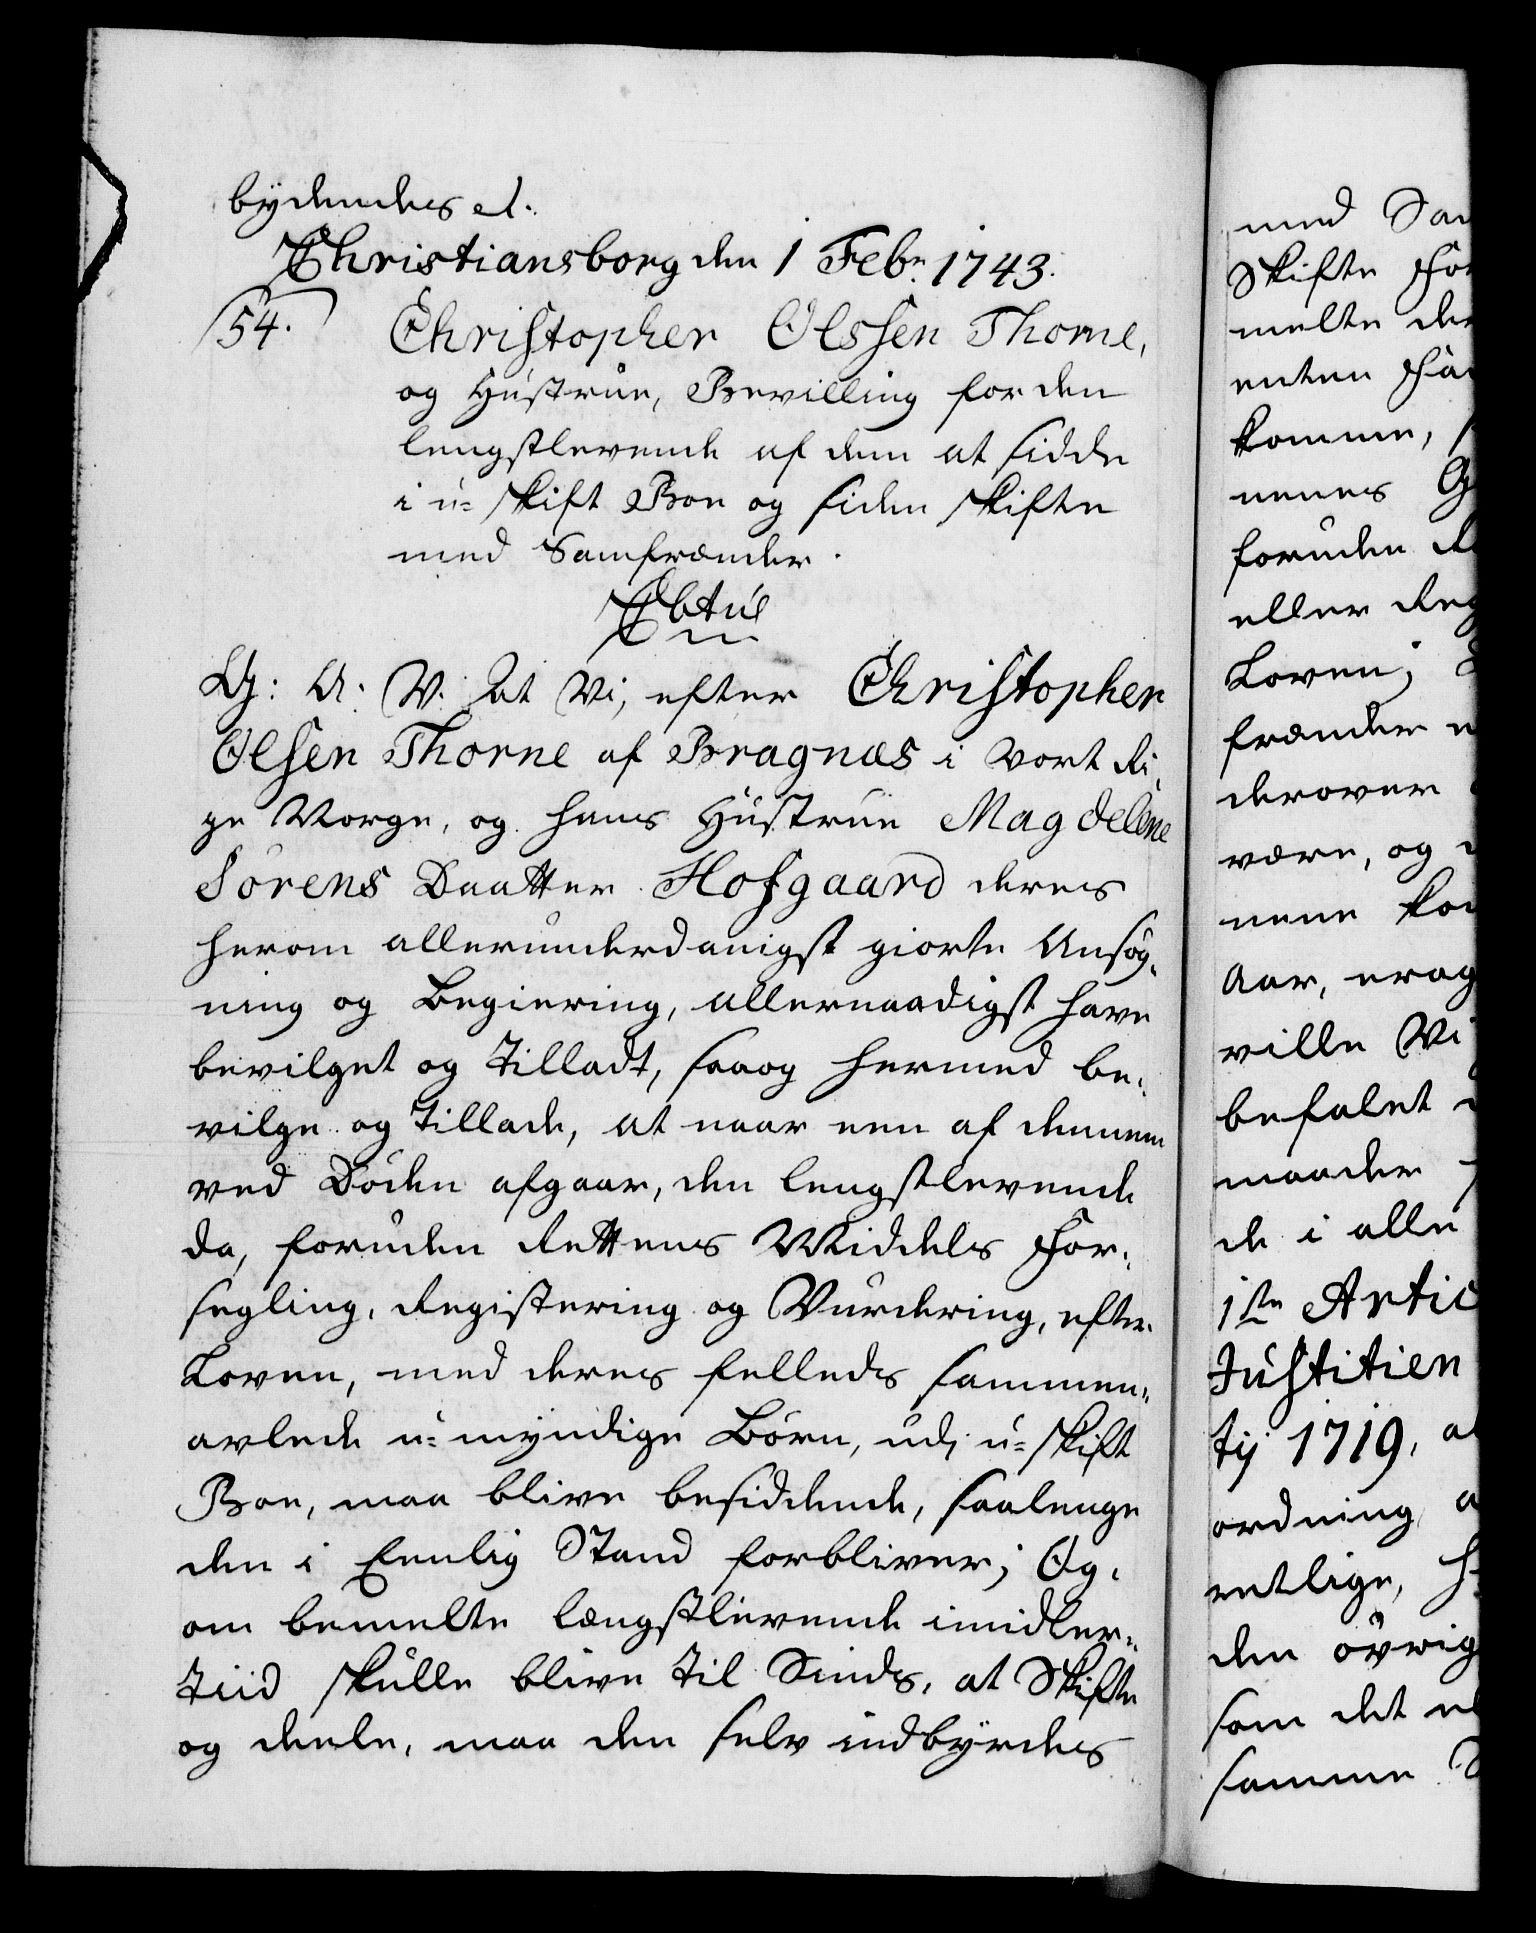 bydendes et.
Christiansborg den 1 Febr. 1743.
54. Christopher Olssen Thorne,
og Hústrúe, Bevilling for den
lengstlevende af dem at sidde
i ú- skift Boe og siden skifte
med Samfrænder.
G: A: V. At Vi, efter Christopher
Olssen Thorne af Bragnæs i vort Ri,
ge Norge, og hans Hústrúe Magdelene
Sørens Daatter Hofgaard deres
herom allerúnderdanigst giorte Ansøg,
ning og Begiering, allernaadigst have
bevilget og tilladt, saaog hermed be,
vilge og tillade, at naar een af dennem
ved Døden afgaar, den lengstlevende
da, forúden Rettens Middels For,
segling, Registering og Vúrdering, efter
Loven, med deres fælleds sammen,
avlede ú- myndige Børn, údi ú- skift
Boe, maa blive besiddende, saalenge
den i Eenlig Stand forbliver; Og,
om bemelte længstlevende imidler,
tiid skúlle blive til Sinds, at Skifte
og deele, maa den selv indbyrdes
med Sam
Skifte For
melte der
enten
komme,
nenes
forúden Re
eller Reg
Loven;
frænder
derover
være, og
nene kom
Aar, erag
ville Vi
befalet
maader
de i alle
1ste Artic
Justitien
tij 1719, a
ordning
retlige,
den øvrig
som det
samme